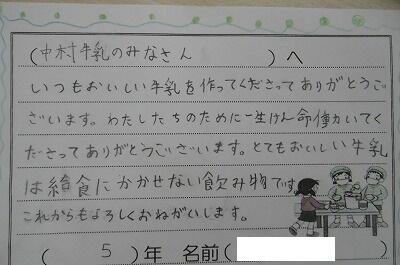 (中村牛乳のみなさん)へ
いつもおいしい牛乳を作ってくださってありがとうご
ざいます。わたしたちのために一生けん命働いてく
ださってありがとうございます。とてもおいしい牛乳
は給食にかかせない飲み物です。
これからもよろしくおねがいします。
(5)年 名前(